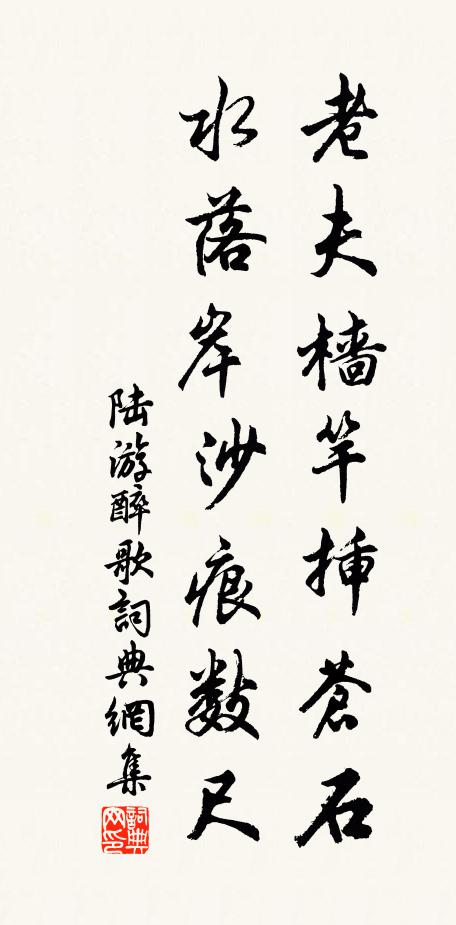 老夫檣竿插蒼石
水落岸沙痕數尺
陆游醉歌詞典網集
詞典网印